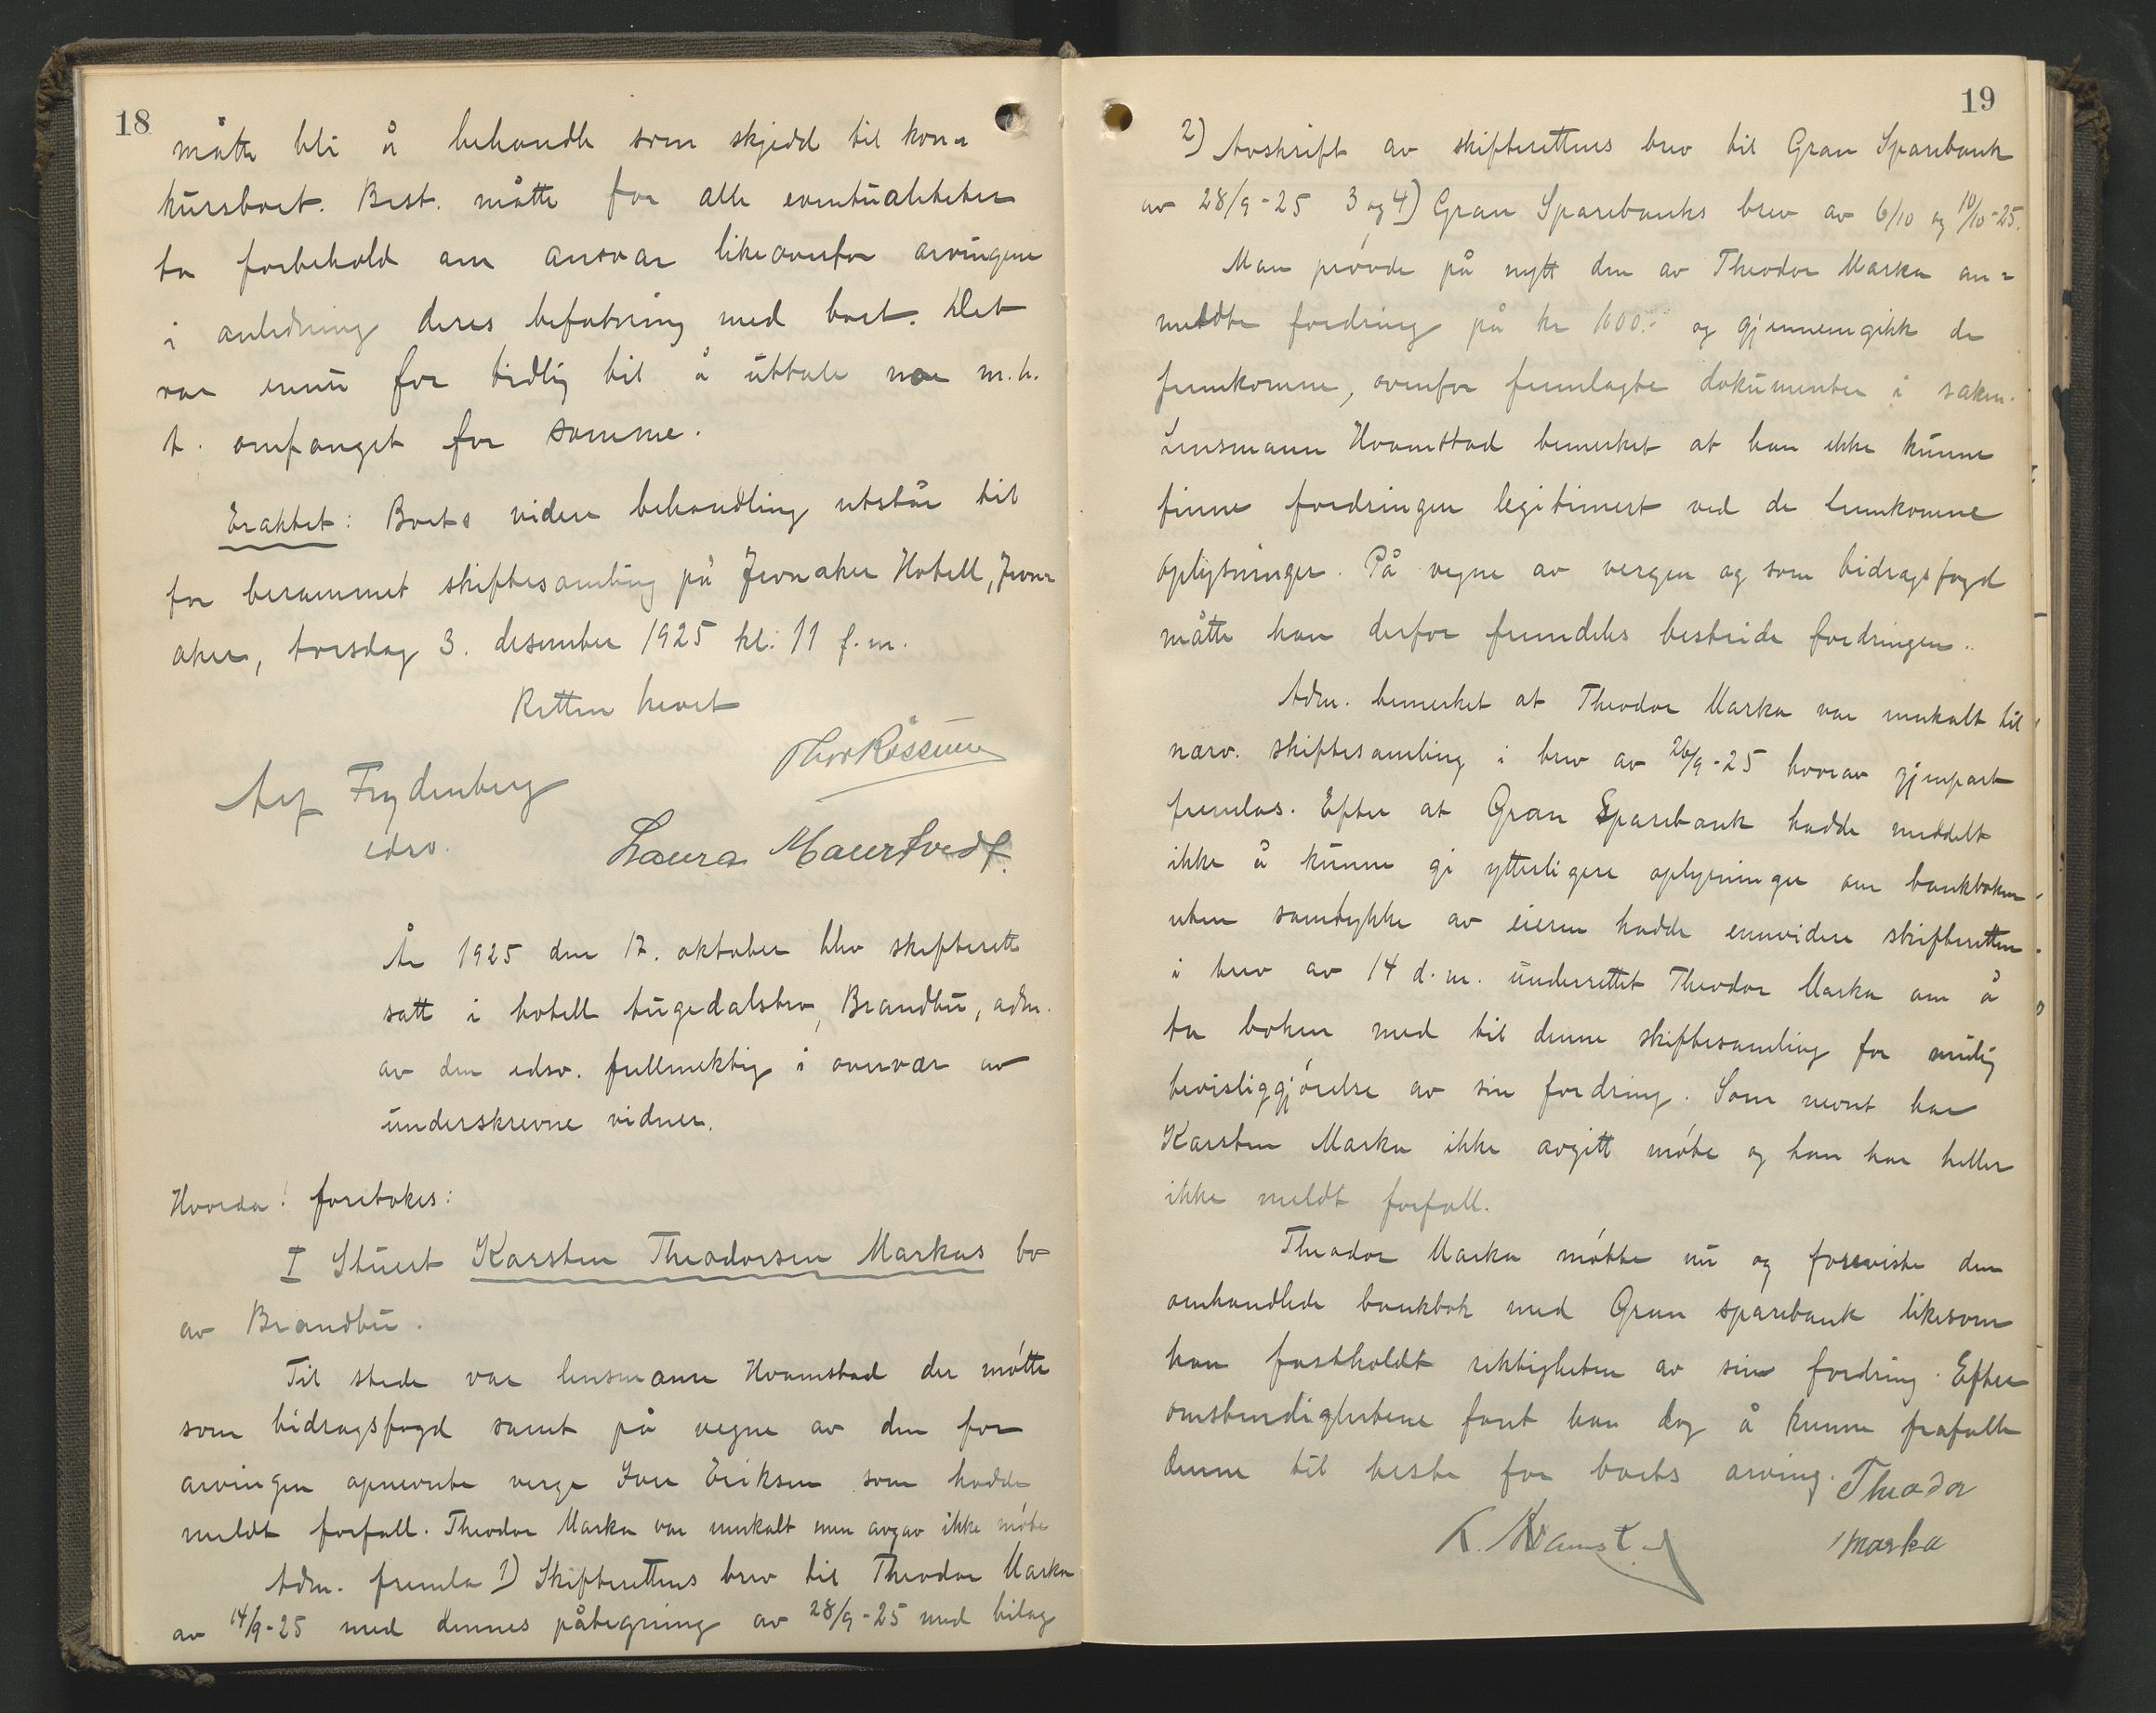 18
måtte bli å behandle som skjedd til kon=
kursboet. Best. måtte for alle eventualiteter
ta forbehold om ansvar likeovenfor arvingene
i anledning deres befatning med boet. Det
var ennu for tidlig til å uttale noe m.h.
t. omfanget for samme.
Eraktet: Boets videre behandling utstår til
for berammet skiftesamling på Jevnaker Hotell, Jevn=
aker, torsdag 3. desember 1925 kl. 11 f.m.
Retten hevet
Thor Røssum
Arf Frydenberg
edsv.
Laura Maurtvedt.
År 1925 den 17. oktober blev skifterett
satt i hotell Augedalsbro, Brandbu, adm.
av den edsv. fullmektig i overvær av
underskrevne vidner.
Hvorda! foretokes:
I Stuert Karsten Theodorsen Markas bo
av Brandbu.
Til stede var lensmann Hvamstad der møtte
som bidragsfogd samt på vegne av den for
arvingen opnevnte verge Iver Eriksen som hadde
meldt forfall. Theodor Marka var innkalt men avgav ikke møte
Adm. fremla 1) Skifterettens brev til Theodor Marka
av 14/9-25 med dennes påtegning av 28/9-25 med bilag
19
2) Avskrift av skifterettens brev til Gran Sparebank
av 28/9-25 3 og 4) Gran Sparebanks brev av 6/10 og 10/10-25.
Man prøvde på nytt den av Theodor Marka an=
meldte fordring på kr 1600.- og gjennemgikk de
fremkomne, ovenfor fremlagte dokumenter i saken.
Lensmann Hvamstad bemerket at han ikke kunne
finne fordringen legitimert ved de fremkomne
oplysninger. På vegne av vergen og som bidragsfogd
måtte han derfor fremdeles bestride fordringen.
Adm. bemerket at Theodor Marka var innkalt til
nærv. skiftesamling i brev av 26/9-25 hvorav gjenpart
fremlas. Efter at Gran Sparebank hadde meddelt
ikke å kunne gi ytterligere oplysninger om bankboken
uten samtykke av eieren hadde ennvidere skifteretten
i brev av 14 d.m. underrettet Theodor Marka om å
ta boken med til denne skiftesamling for mulig
bevisliggjørelse av sin fordring. Som nevnt har
Karsten Marka ikke avgitt møte og han har heller
ikke meldt forfall.
Theodor Marka møtte nu og foreviste den
omhandlede bankbok med Gran sparebank likesom
han fastholdt riktigheten av sin fordring. Efter
omstendighetene fant han dog å kunne frafalle
denne til beste for boets arving. Theodor
K. Hvamstad marka